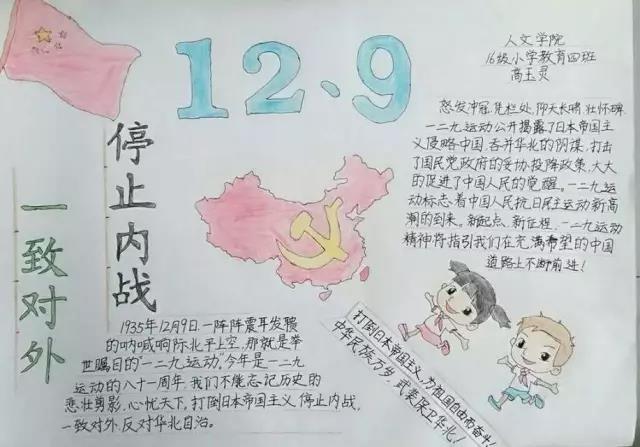 12.9
人文学院
16级小学教育四班
高玉灵
停止内战
一致对外
怒发冲冠,凭栏处,仰天长啸,壮怀碑,
一二九运动公开揭露了日本帝国主
义侵略中国,吞并华北的阴谋,打击
了国民党政府的妥协投降政策,大大
的促进了中国人民的觉醒。一二九运
动标志着中国人民抗日民主运动新高
潮的到来。新起点、新征程,一二九运动
精神将指引我们在充满希望的中国
道路上不断前进!
1935年12月9日,一阵阵震耳发聩
的呐喊响际北平上空,那就是举
世瞩目的“一二九运动”。今年是一二九
运动的八十一周年,我们不能忘记历史的
悲壮剪影,心忧天下,打倒日本帝国主义,停止内战,
一致对外,反对华北自治。
打倒日本帝国主义,为祖国自由而奋斗!
中华民族万岁,武装保卫华北